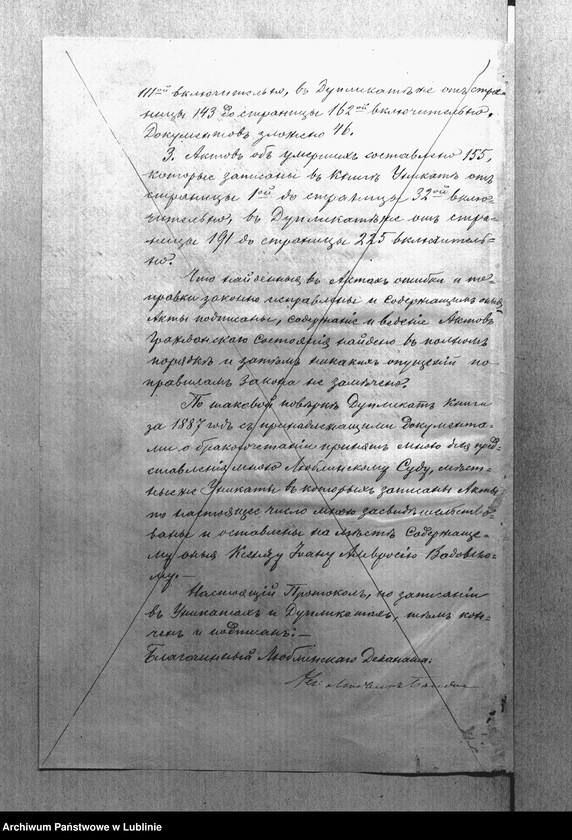 111ой включительно, въ Дупликатѣ же отъ стра-
ницы 143 до страницы 162ой включительно.
Документовъ зложено 46.
3. Актовъ объ умершихъ составлено 155,
которые записаны въ Книгѣ Уникатъ отъ
страницы 1ой до страницы 32ой вклю-
чительно, въ Дупликатѣ же отъ стра-
ницы 191 до страницы 225 включитель-
но.
Что найденныя въ Актахъ ошибки и по-
правки законно исправлены и содержащимъ оныя
Акты подписаны, содержаніе и веденіе Актовъ
Гражданскаго Состоянія найдено въ полномъ
порядкѣ и затѣмъ никакихъ опущеній по
правиламъ Закона не замѣчено.
По таковой повѣркѣ Дупликатъ Книги
за 1887 годъ съ принадлежащими Документа-
ми о бракосочетаніи принятъ мною для пред-
ставленія мною Люблинскому Суду, мѣст-
ные же Уникаты въ которыхъ записаны Акты
по настоящее число мною засвидѣтельство-
ваны и оставлены на мѣстѣ Содержаще-
му оныя Ксендзу Іоану Амвросію Вадовско-
му.—
Настоящій Протоколъ, по записаніи
въ Уникатахъ и Дупликатахъ, тѣмъ кон-
ченъ и подписанъ:—
Благочинный Люблинскаго Деканата:
Кс.
Archiwum Państwowe w Lublinie